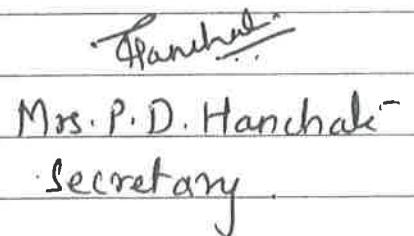 Hanchale
Mrs. P. D. Hanchale
Secretary.